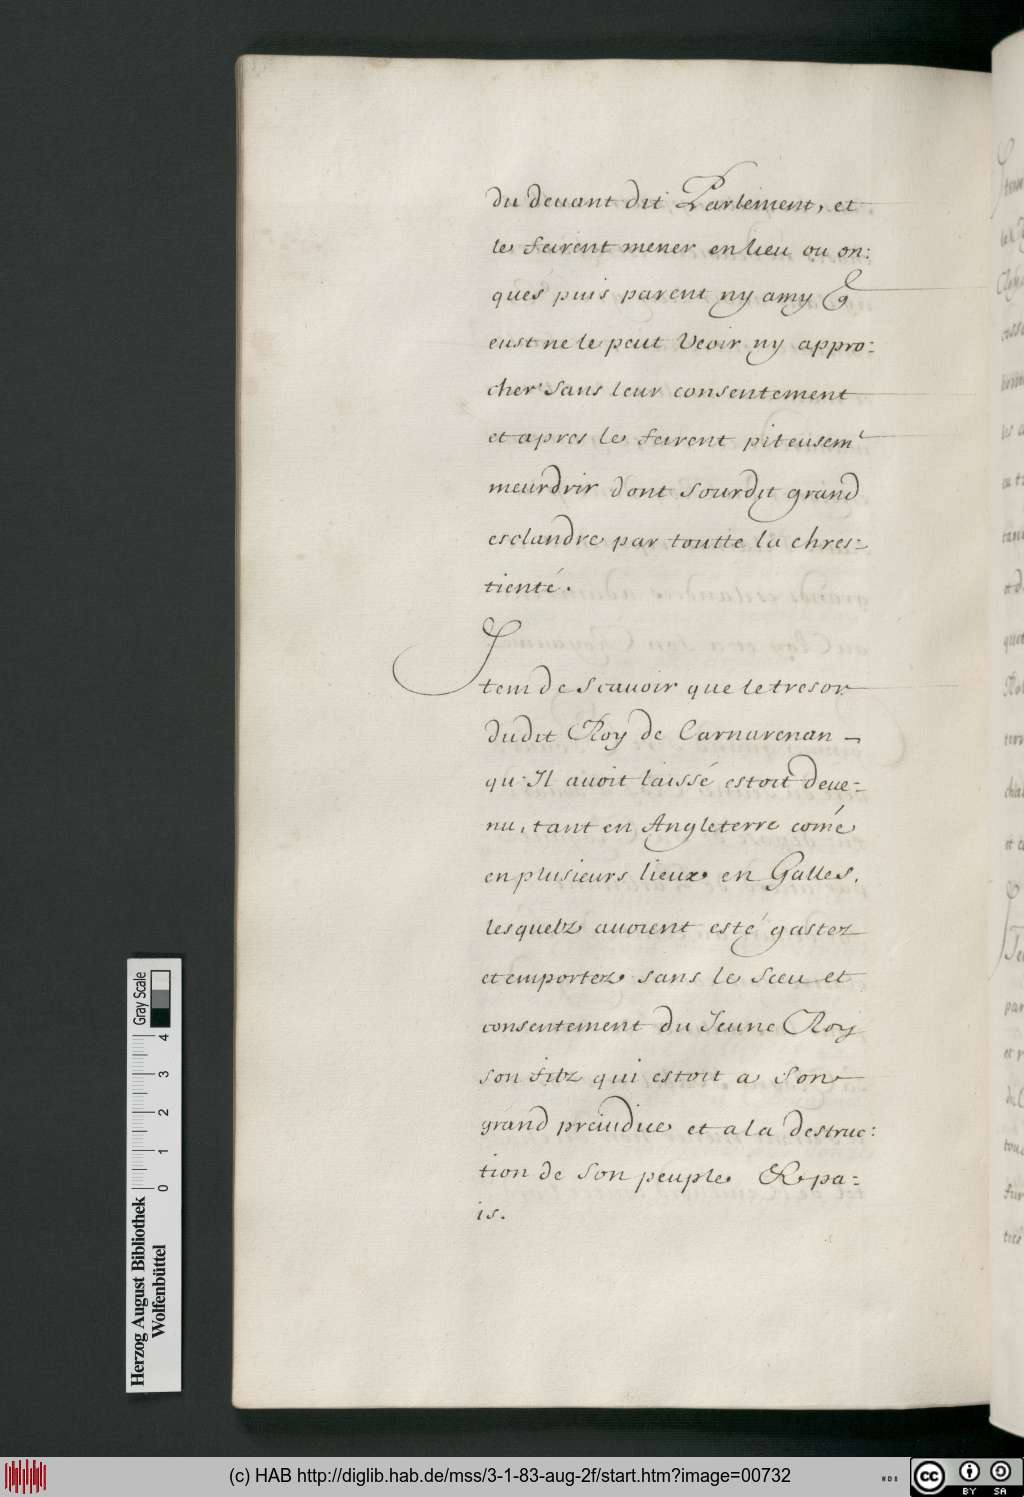 du deuant dit Parlement, et
le feirent mener en lieu ou on:
ques puis parent ny amy
eust ne le peut veoir ny appro:
cher sans leur consentement
et apres le feirent piteusemt
meurdrir dont sourdit grand
esclandre par toutte la chres:
tienté.
Item de scauoir que le tresor
dudit Roy de Carnarenan -
qu'Il auoit laissé estoit deue:
nu, tant en Angleterre comé
en plusieurs lieux en Galles,
lesquelz auoient esté gastez
et emportez sans le sceu et
consentement du Jeune Roy
son filz qui estoit a son
grand preiudice et a la destruc:
tion de son peuple & pa:
is.
Herzog August Bibliothek
Wolfenbüttel
0 1 2 3 4
Gray Scale
(c) HAB http://diglib.hab.de/mss/3-1-83-aug-2f/start.htm?image=00732
WDB
cc BY SA